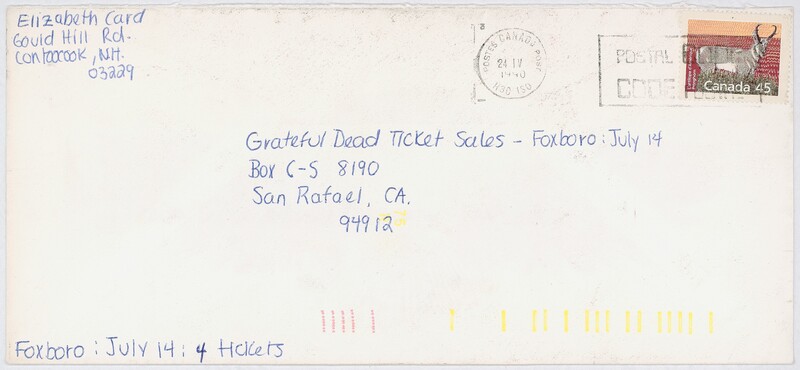 Elizabeth Card
Gould Hill Rd.
Contoocook, NH.
03229
POSTES CANADA POST
24 IV
1990
POSTAL
CODE
Canada 45
Grateful Dead Ticket Sales - Foxboro: July 14
Box C-S 8190
San Rafael, CA.
94912
Foxboro: July 14: 4 tickets